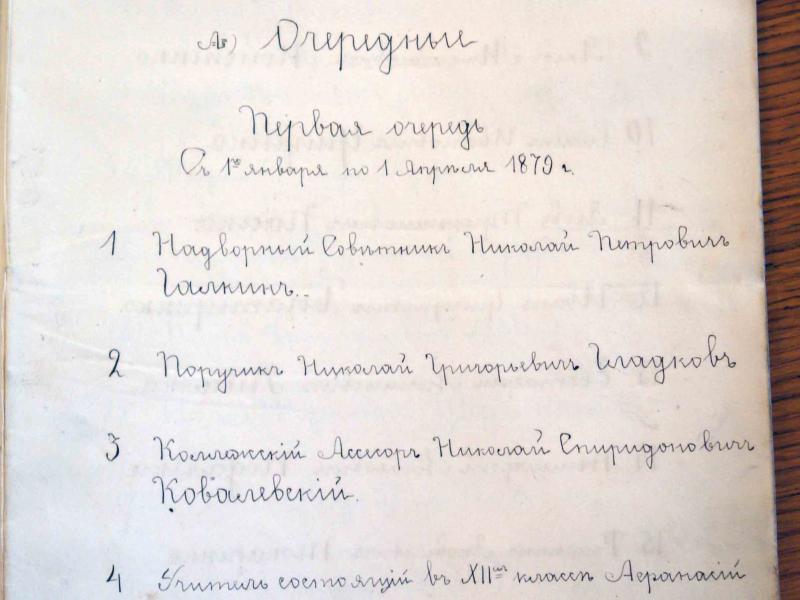 А) Очередные
Первая очередь
Съ 1го января по 1 Апрѣля 1879 г.
1 Надворный Совѣтникъ Николай Петровичъ
Галкинъ.
2 Поручикъ Николай Григорьевичъ Гладковъ
3 Коллежскій Ассесоръ Николай Спиридоновичъ
Ковалевскій.
4 Учитель состоящій въ XIIмъ классѣ Афанасій